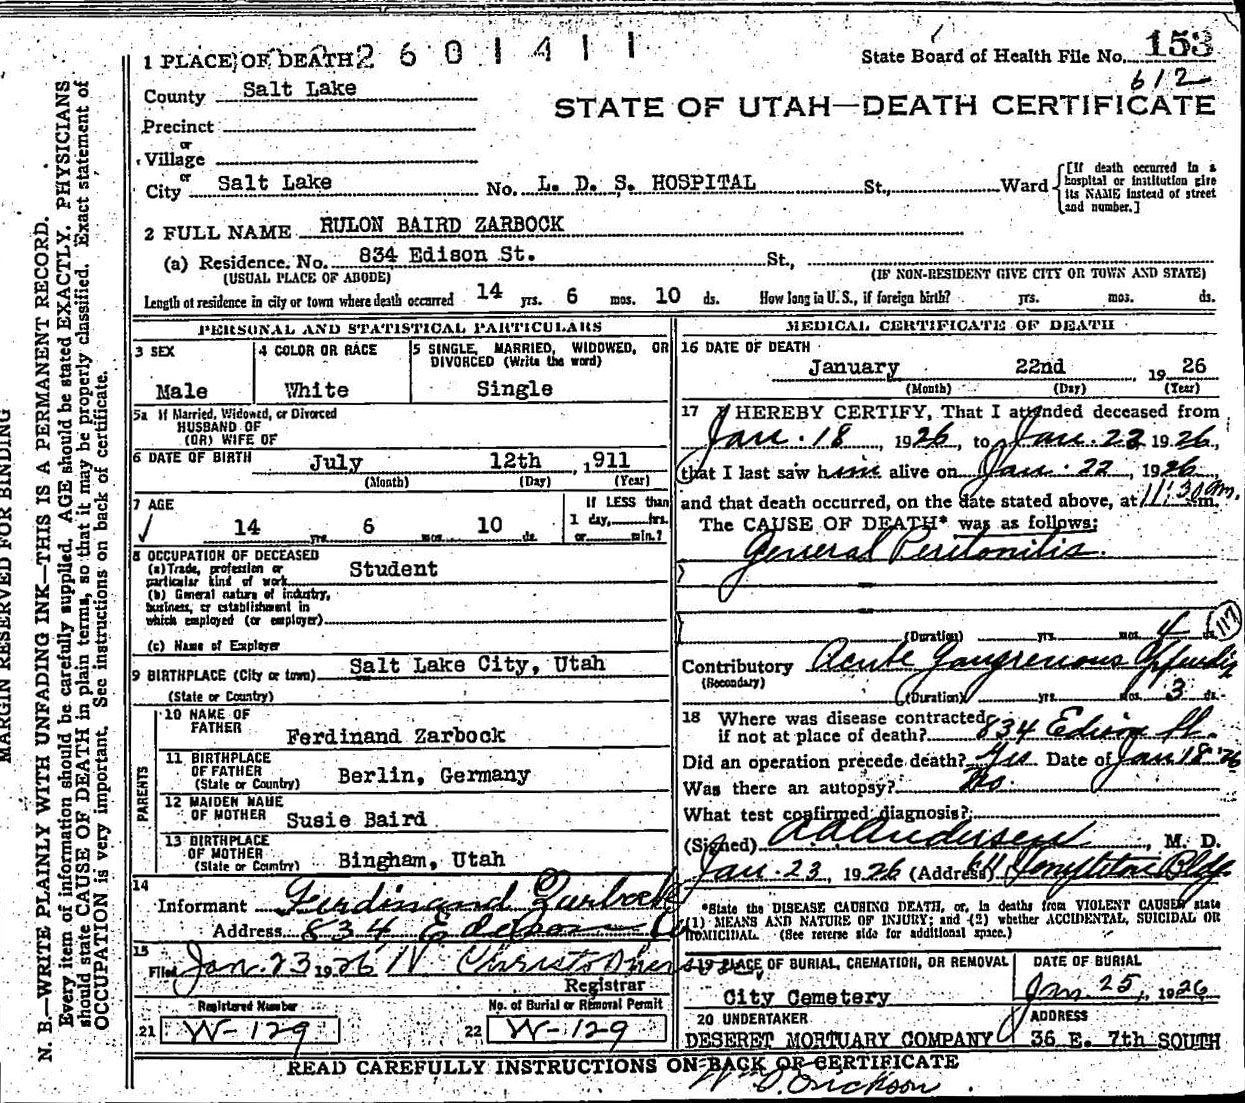 1 PLACE OF DEATH 2 6 0 1 4 1 1
State Board of Health File No. 153
612
County Salt Lake
STATE OF UTAH—DEATH CERTIFICATE
Precinct
or
Village
or
City Salt Lake No. L. D. S. HOSPITAL St., Ward
[If death occurred in a hospital or institution give its NAME instead of street and number.]
2 FULL NAME RULON BAIRD ZARBOCK
(a) Residence. No. 834 Edison St. St.,
(USUAL PLACE OF ABODE) (IF NON-RESIDENT GIVE CITY OR TOWN AND STATE)
Length of residence in city or town where death occurred 14 yrs. 6 mos. 10 ds. How long in U. S., if foreign birth? yrs. mos. ds.
PERSONAL AND STATISTICAL PARTICULARS
3 SEX
Male
4 COLOR OR RACE
White
5 SINGLE, MARRIED, WIDOWED, OR
DIVORCED (Write the word)
Single
5a If Married, Widowed, or Divorced
HUSBAND OF
(OR) WIFE OF
6 DATE OF BIRTH July 12th , 1911
(Month) (Day) (Year)
7 AGE
14 yrs. 6 mos. 10 ds.
If LESS than
1 day, hrs.
or min.?
8 OCCUPATION OF DECEASED
(a) Trade, profession or
particular kind of work Student
(b) General nature of industry,
business, or establishment in
which employed (or employer)
(c) Name of Employer
9 BIRTHPLACE (City or town) Salt Lake City, Utah
(State or Country)
PARENTS
10 NAME OF
FATHER Ferdinand Zarbock
11 BIRTHPLACE
OF FATHER
(State or Country) Berlin, Germany
12 MAIDEN NAME
OF MOTHER Susie Baird
13 BIRTHPLACE
OF MOTHER
(State or Country) Bingham, Utah
14
Informant Ferdinand Zarbock
Address 834 Edison
15
Filed Jan. 23 1926
Registrar
Registered Number
21 W-129
No. of Burial or Removal Permit
22 W-129
MEDICAL CERTIFICATE OF DEATH
16 DATE OF DEATH
January 22nd , 19 26
(Month) (Day) (Year)
17 I HEREBY CERTIFY, That I attended deceased from
Jan. 18 , 1926, to Jan. 22 1926,
that I last saw him alive on Jan. 22 , 1926
and that death occurred, on the date stated above, at 11:30 am.
The CAUSE OF DEATH* was as follows:
General Peritonitis
(Duration) yrs. mos. 4 ds.
117
Contributory Acute Gangrenous
(Secondary)
(Duration) yrs. mos. 3 ds.
18 Where was disease contracted
if not at place of death? 834 Edison St.
Did an operation precede death? Yes Date of Jan 18 '26
Was there an autopsy? No.
What test confirmed diagnosis?
(Signed) Andersen , M. D.
Jan. 23, 1926 (Address) Bldg.
*State the DISEASE CAUSING DEATH, or, in deaths from VIOLENT CAUSES state
(1) MEANS AND NATURE OF INJURY; and (2) whether ACCIDENTAL, SUICIDAL OR
HOMICIDAL. (See reverse side for additional space.)
19 PLACE OF BURIAL, CREMATION, OR REMOVAL
City Cemetery
DATE OF BURIAL
Jan. 25, 1926
20 UNDERTAKER
DESERET MORTUARY COMPANY
ADDRESS
36 E. 7th SOUTH
READ CAREFULLY INSTRUCTIONS ON BACK OF CERTIFICATE
Erickson
MARGIN RESERVED FOR BINDING
N. B.—WRITE PLAINLY WITH UNFADING INK—THIS IS A PERMANENT RECORD.
Every item of information should be carefully supplied. AGE should be stated EXACTLY. PHYSICIANS
should state CAUSE OF DEATH in plain terms, so that it may be properly classified. Exact statement of
OCCUPATION is very important. See instructions on back of certificate.